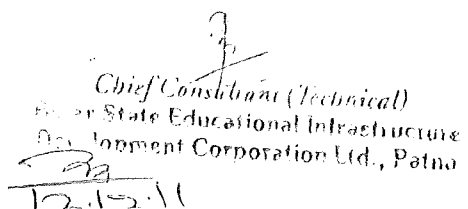 Chief Consultant (Technical)
State Educational Infrastructure
Development Corporation Ltd., Patna
12.12.11